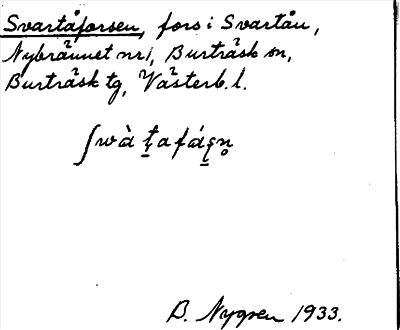 Svartåforsen, fors i Svartån,
Nybrännet nr 1, Burträsk sn,
Burträsk tg, Västerb. l.
B. Nygren 1933.